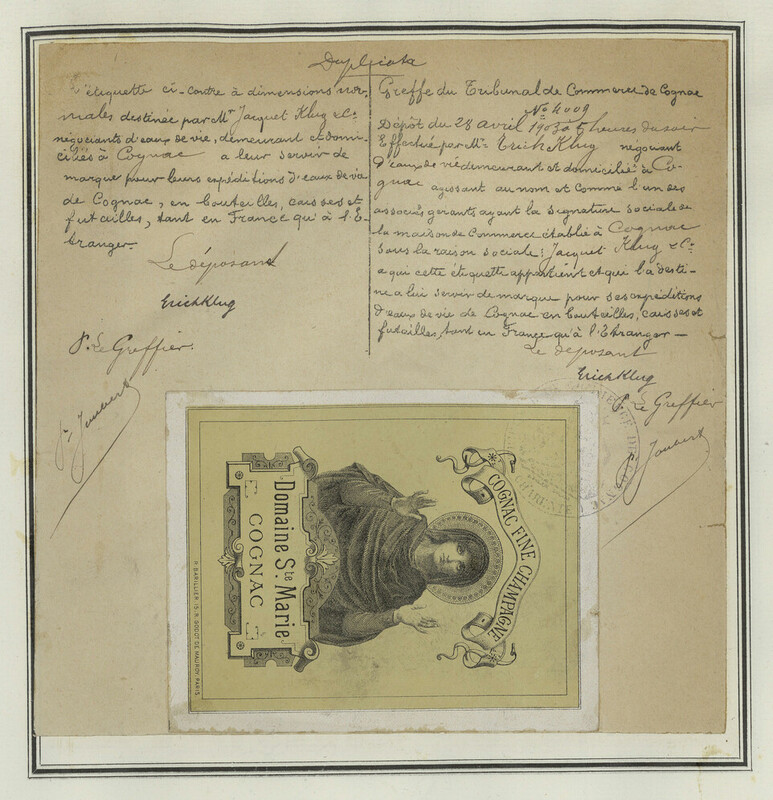 Duplicata
L'étiquette ci-contre à dimensions nor-
males destinée par Mr Jacquet Klug & Cº
négociants d'eaux de vie, demeurant et domi-
ciliés à Cognac a leur servir de
marque pour leurs expéditions d'eaux de vie
de Cognac, en bouteilles, caisses et
futailles, tant en France qu'à l'É-
tranger-
Le déposant
Erich Klug
P. Le Greffier.
Pre Joubert
Greffe du Tribunal de Commerce de Cognac
Nº 4009
Dépôt du 28 avril 1903 à 5 heures du soir
Effectué par Mr Erich Klug négociant
d'eaux de vie demeurant et domicilié à Co-
gnac agissant au nom et comme l'un des
associés gérants ayant la signature sociale de
la maison de Commerce établie à Cognac
sous la raison sociale: Jacquet Klug & Cº
a qui cette étiquette appartient et qui l'a desti-
né a lui servir de marque pour ses expéditions
d'eaux de vie de Cognac en bouteilles, caisses et
futailles, tant en France qu'à l'Etranger-
Le déposant
Erich Klug
P. Le Greffier
Joubert
COGNAC FINE CHAMPAGNE
Domaine Ste Marie
COGNAC
CHARENTE